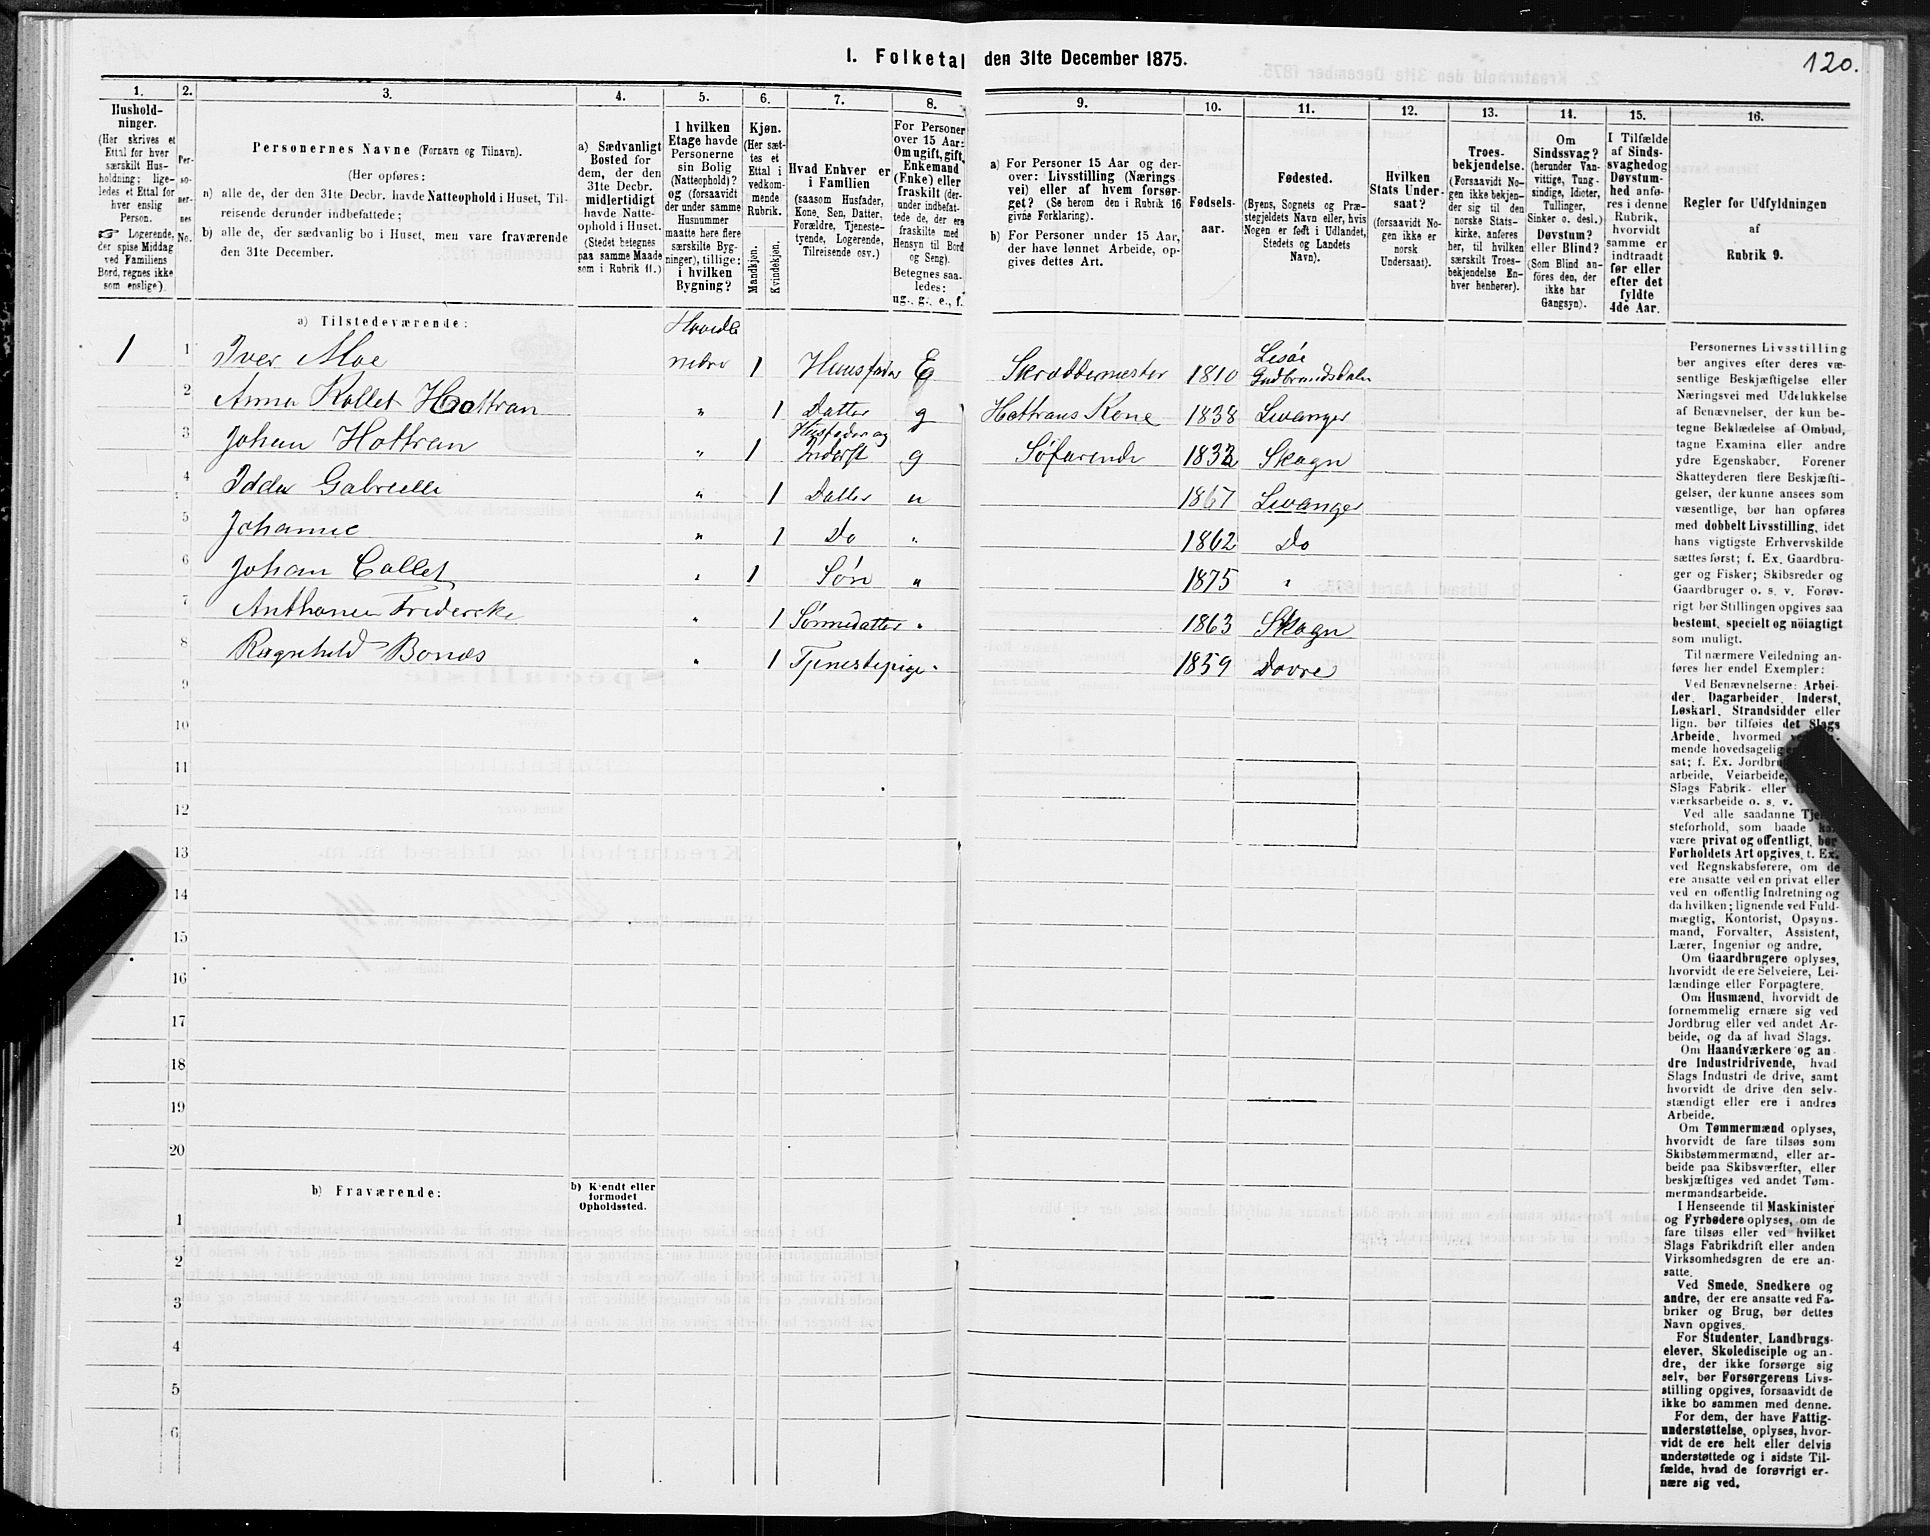 120.
1. Folketal den 31te December 1875.
1. 2. 3. 4. 5. 6. 7. 8. 9. 10. 11. 12. 13. 14. 15. 16.
Hushold-
ninger.
(Her skrives et
Ettal for hver
særskilt Hus-
holdning; lige-
ledes et Ettal for
hver enslig
Person.
☞ Logerende,
der spise Middag
ved Familiens
Bord, regnes ikke
som enslige).
Per-
so-
ner-
nes
No.
Personernes Navne (Fornavn og Tilnavn).
(Her opføres:
a) alle de, der den 31te Decbr. havde Natteophold i Huset, Til-
reisende derunder indbefattede;
b) alle de, der sædvanlig bo i Huset, men vare fraværende
den 31te December.
a) Sædvanligt
Bosted for
dem, der den
31te Decbr.
midlertidigt
havde Natte-
ophold i Huset.
(Stedet betegnes
paa samme Maade
som i Rubrik 11.)
I hvilken
Etage havde
Personerne
sin Bolig
(Natteophold)?
og (forsaavidt
der under samme
Husnummer
maatte høre flere
særskilte Byg-
ninger), tillige:
i hvilken
Bygning?
Kjøn.
(Her sæt-
tes et
Ettal i
vedkom-
mende
Rubrik.
Mandkjøn.
Kvindekjøn.
Hvad Enhver er
i Familien
(saasom Husfader,
Kone, Søn, Datter,
Forældre, Tjeneste-
tyende, Logerende,
Tilreisende osv.)
For Personer
over 15 Aar:
Om ugift, gift,
Enkemand
(Enke) eller
fraskilt (der-
under indbefat-
tede de, der ere
fraskilte med
Hensyn til Bord
og Seng).
Betegnes saa-
ledes:
ug., g., e., f.
a) For Personer 15 Aar og der-
over: Livsstilling (Nærings-
vei) eller af hvem forsør-
get? (Se herom den i Rubrik 16
givne Forklaring).
b) For Personer under 15 Aar,
der have lønnet Arbeide, op-
gives dettes Art.
Fødsels-
aar.
Fødested.
(Byens, Sognets og Præ-
stegjeldets Navn eller, hvis
Nogen er født i Udlandet,
Stedets og Landets
Navn).
Hvilken
Stats Under-
saat?
(forsaavidt No-
gen ikke er
norsk
Undersaat).
Troes-
bekjendelse.
(Forsaavidt No-
gen ikke bekjen-
der sig til den
norske Stats-
kirke, anføres
her, til hvilken
særskilt Troes-
bekjendelse En-
hver henhører).
Om
Sindssvag?
(herunder Van-
vittige, Tung-
sindige, Idioter,
Tullinger,
Sinker o. desl.)
Døvstum?
eller Blind?
(Som Blind an-
føres den, der
ikke har
Gangsyn).
I Tilfælde
af Sinds-
svaghed og
Døvstum-
hed anfø-
res i denne
Rubrik,
hvorvidt
samme er
indtraadt
før eller
efter det
fyldte
4de Aar.
Regler for Udfyldningen
af
Rubrik 9.
a) Tilstedeværende:
1 1 Iver Moe nedre 1 Huusfader E Skræddermester 1810 Lesøe Gudbrandsdalen
2 Anna Kollet Hottran " 1 Datter g Hottrans Kone 1838 Levanger
3 Johan Hottran " 1 Husfader og Inderst g Søfarende 1832 Skogn
4 Idda Gabrielle " 1 Datter u 1867 Levanger
5 Johanne " 1 Do " 1862 Do
6 Johan Collet " 1 Søn " 1875 "
7 Anthonie Frederike " 1 Sønnedatter " 1863 Skogn
8 Ragnhild Bonæs " 1 Tjenestepige " 1859 Dovre
9
10
11
12
13
14
15
16
17
18
19
20
b) Fraværende:
b) Kjendt eller
formodet
Opholdssted.
1
2
3
4
5
6
Personernes Livsstilling
bør angives efter deres væ-
sentlige Beskjæftigelse eller
Næringsvei med Udelukkelse
af Benævnelser, der kun be-
tegne Beklædelse af Ombud,
tagne Examina eller andre
ydre Egenskaber. Forener
Skatteyderen flere Beskjæfti-
gelser, der kunne ansees som
væsentlige, bør han opføres
med dobbelt Livsstilling, idet
hans vigtigste Erhvervskilde
sættes først; f. Ex. Gaardbru-
ger og Fisker; Skibsreder og
Gaardbruger o. s. v. Forøv-
rigt bør Stillingen opgives saa
bestemt, specielt og nöiagtigt
som muligt.
Til nærmere Veiledning an-
føres her endel Exempler:
Ved Benævnelserne: Arbei-
der, Dagarbeider, Inderst,
Løskarl, Strandsidder eller
lign. bør tilføies det Slags
Arbeide, hvormed
mende hovedsagelig
sat; f. Ex. Jordbru
arbeide, Veiarbeide,
Slags Fabrik- eller
værksarbeide o. s. v.
Ved alle saadanne Tje
steforhold, som baade
være privat og offentligt, bør
Forholdets Art opgives, t. Ex.
ved Regnskabsførere, om de
ere ansatte ved en privat eller
ved en offentlig Indretning og
da hvilken; lignende ved Fuld-
mægtig, Kontorist, Opsyns-
mand, Forvalter, Assistent,
Lærer, Ingeniør og andre.
Om Gaardbrugere oplyses,
hvorvidt de ere Selveiere, Lei-
lændinge eller Forpagtere.
Om Husmænd, hvorvidt de
fornemmelig ernære sig ved
Jordbrug eller ved andet Ar-
beide, og da af hvad Slags.
Om Haandværkere og an-
dre Industridrivende, hvad
Slags Industri de drive, samt
hvorvidt de drive den selv-
stændigt eller ere i andres
Arbeide.
Om Tømmermænd oplyses,
hvorvidt de fare tilsøs som
Skibstømmermænd, eller ar-
beide paa Skibsværfter, eller
beskjæftiges ved andet Tøm-
mermandsarbeide.
I Henseende til Maskinister
og Fyrbødere oplyses, om de
fare tilsøs eller ved hvilket
Slags Fabrikdrift eller anden
Virksomhedsgren de ere an-
satte.
Ved Smede, Snedkere og
andre, der ere ansatte ved Fa-
briker og Brug, bør dettes
Navn opgives.
For Studenter, Landbrugs-
elever, Skoledisciple og an-
dre, der ikke forsørge sig
selv, bør Forsørgerens Livs-
stilling opgives, forsaavidt de
ikke bo sammen med denne.
For dem, der have Fattig-
understøttelse, oplyses, hvor-
vidt de ere helt eller delvis
understøttede og i sidste Til-
fælde, hvad de forøvrigt er-
nære sig ved.